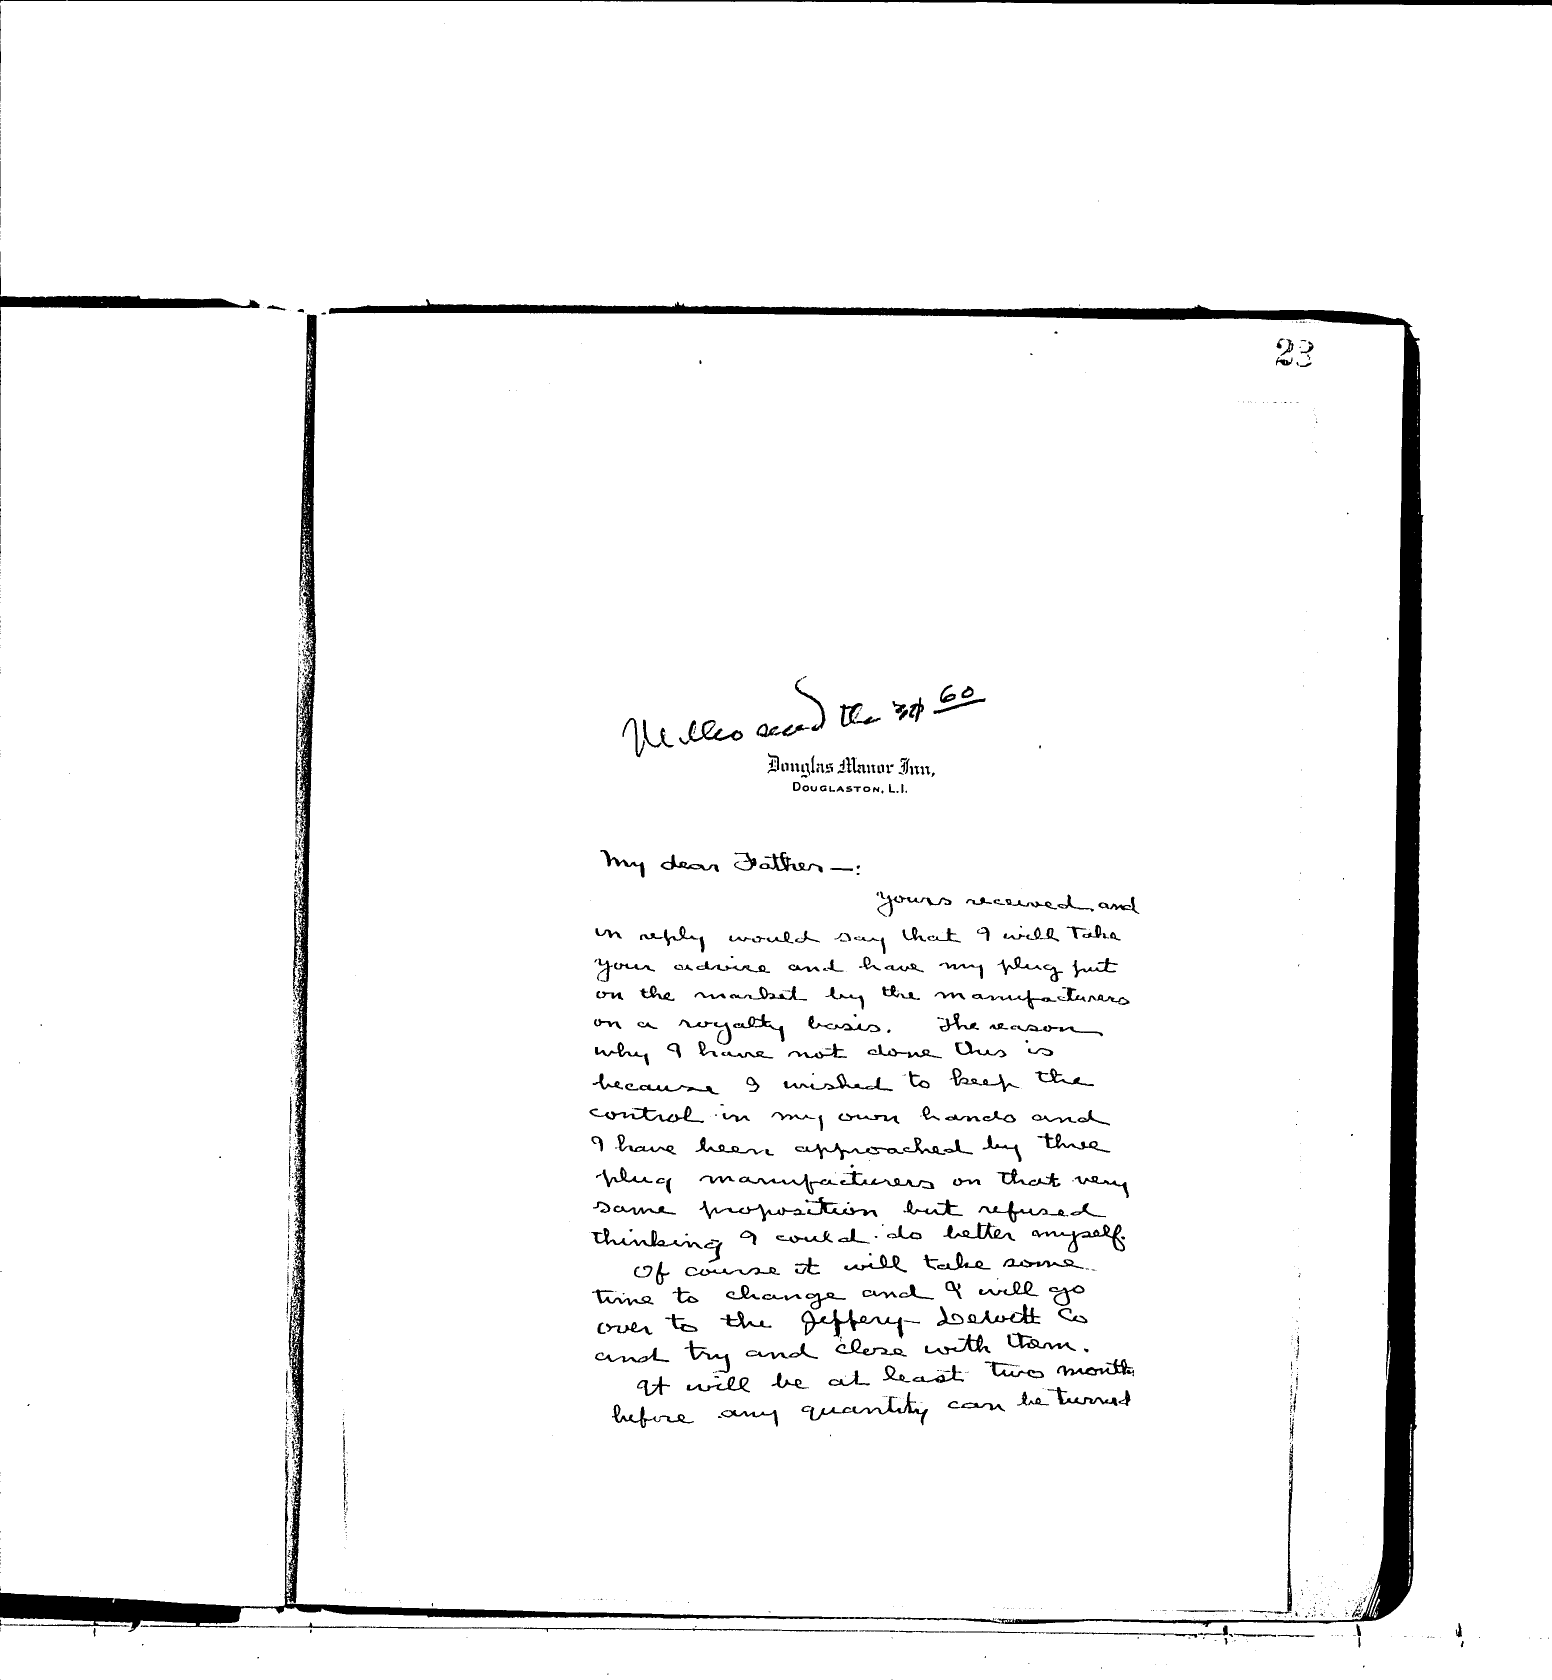 23
Miller send the 30 60
Douglas Manor Inn,
DOUGLASTON, L.I.
My dear Father—:
Yours received and
in reply would say that I will take
your advice and have my plug put
on the market by the manufacturers
on a royalty basis. The reason
why I have not done this is
because I wished to keep the
control in my own hands and
I have been approached by three
plug manufacturers on that very
same proposition but refused
thinking I could do better myself.
Of course it will take some
time to change and I will go
over to the Jeffery-Dewitt Co
and try and close with them.
It will be at least two month
before any quantity can be turned